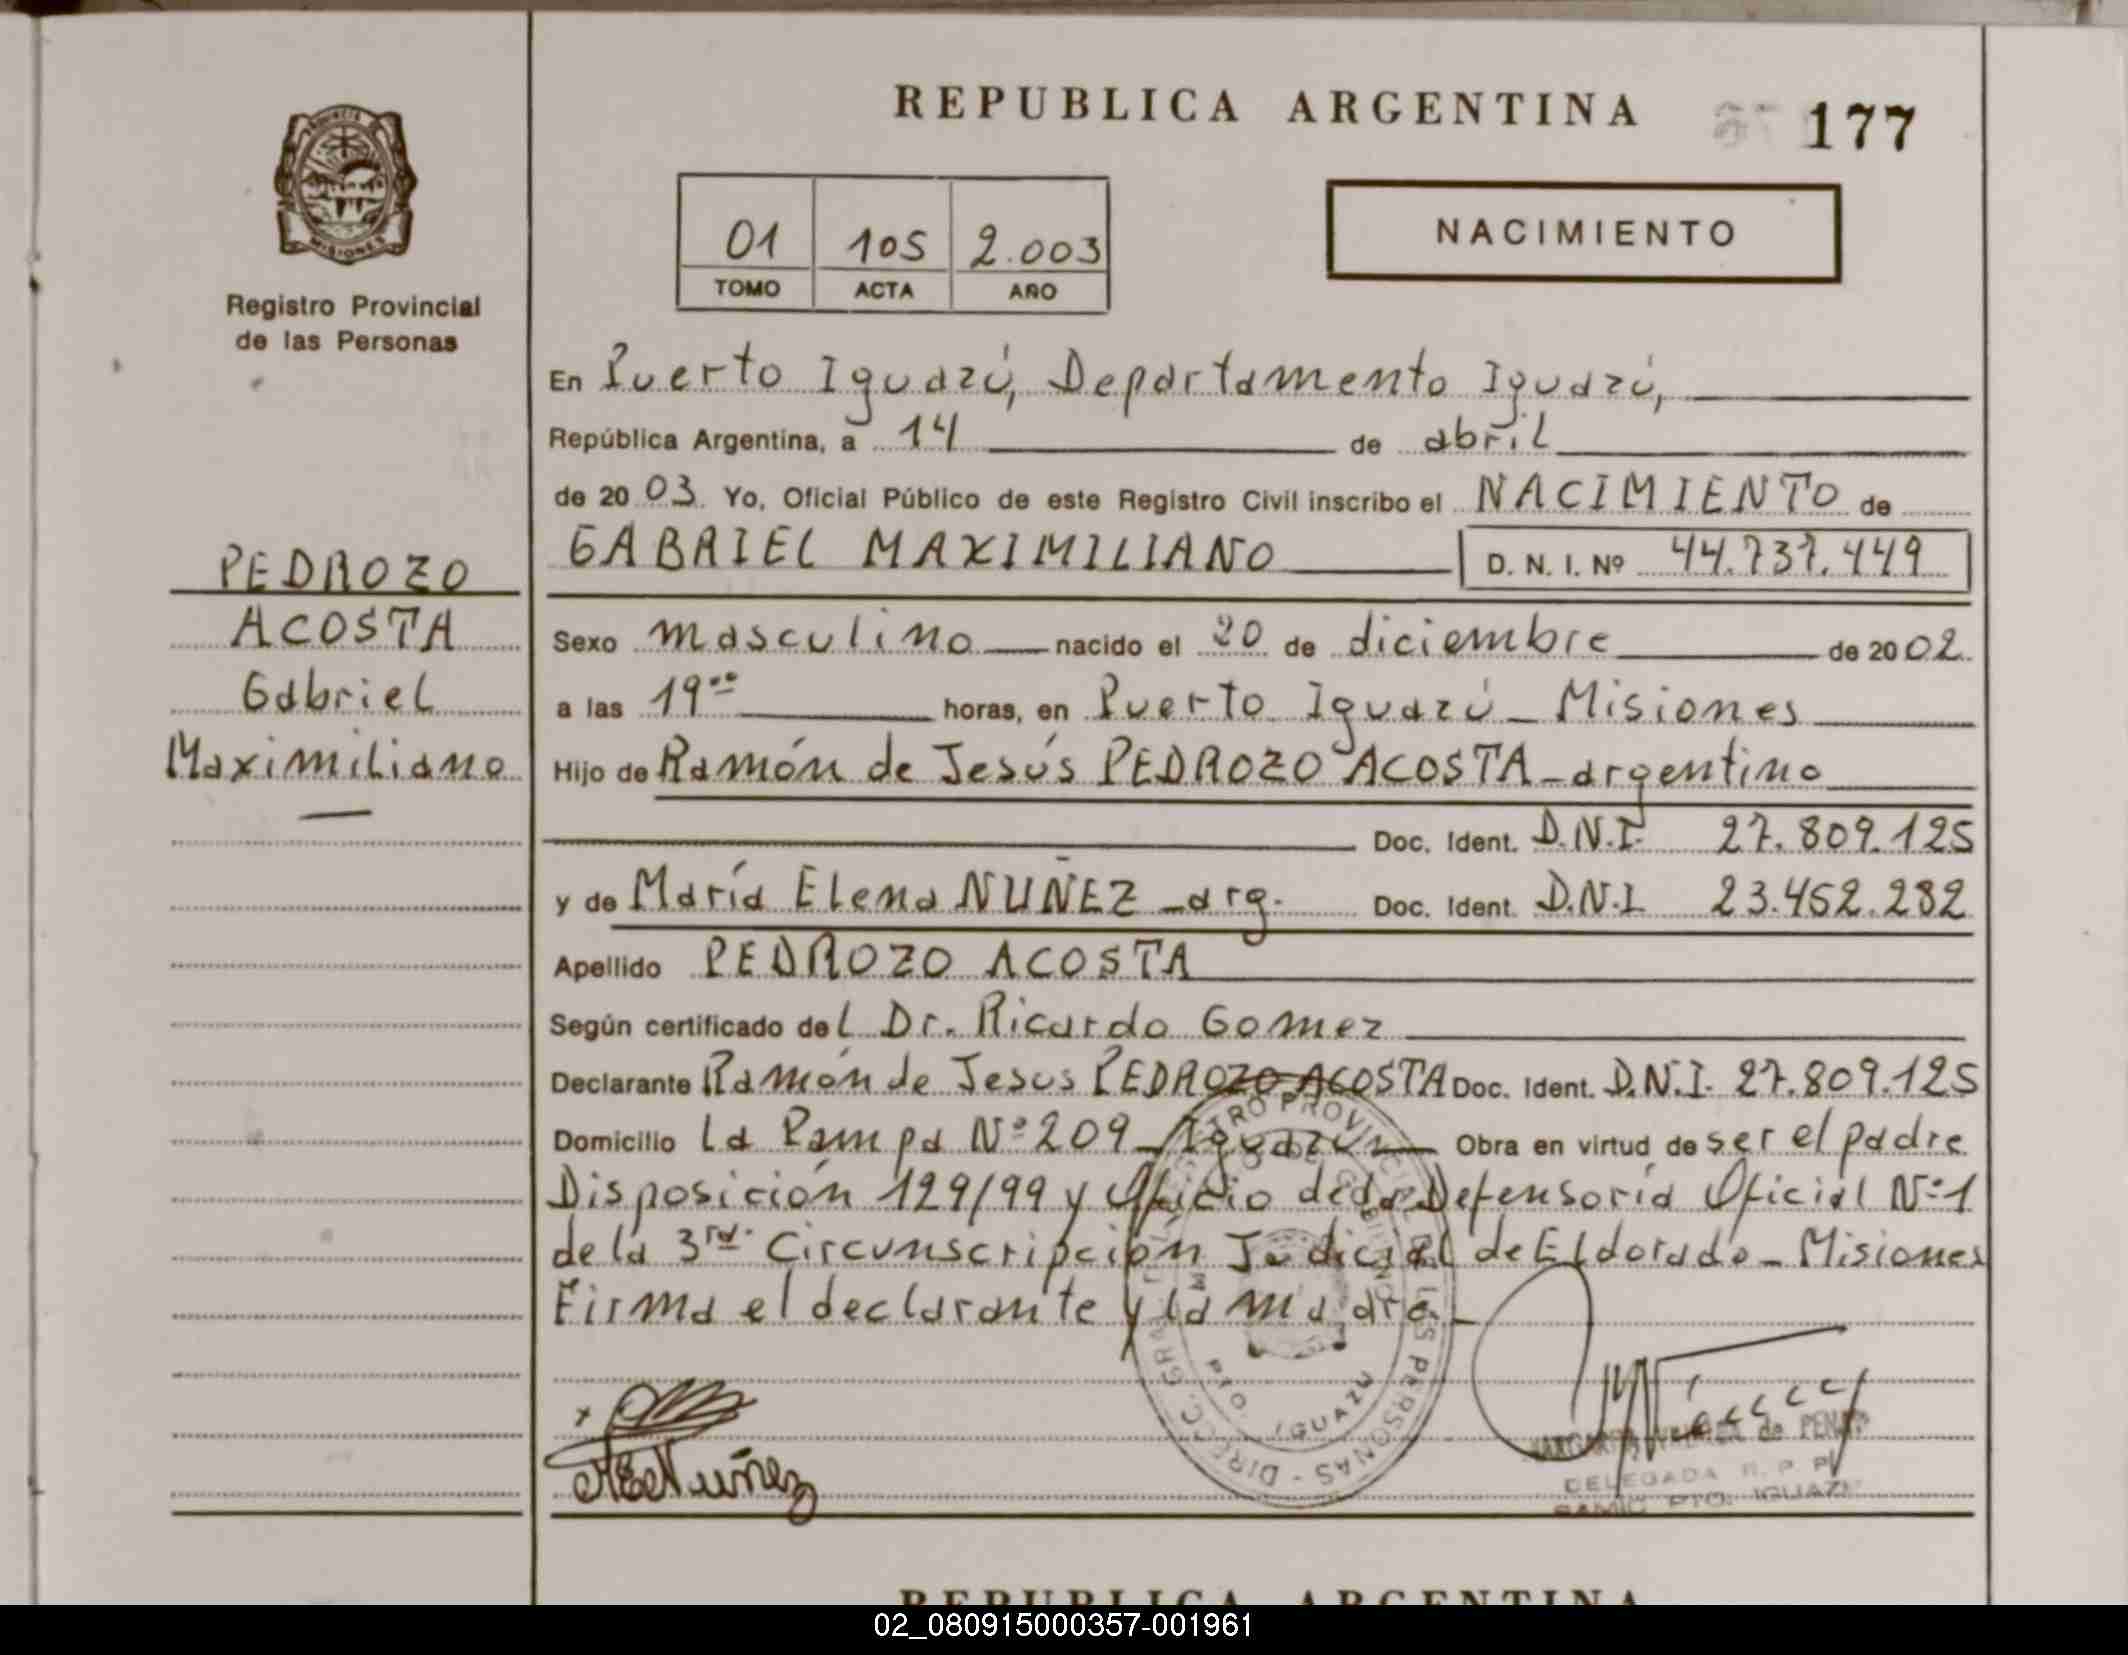 REPUBLICA ARGENTINA 177
MISIONES
Registro Provincial
de las Personas
01 105 2.003
TOMO ACTA AÑO
NACIMIENTO
En Puerto Iguazú, Departamento Iguazú,
República Argentina, a 14 de abril
de 2003. Yo, Oficial Público de este Registro Civil inscribo el NACIMIENTO de
GABRIEL MAXIMILIANO D. N. I. Nº 44.737.449
PEDROZO
ACOSTA
Gabriel
Maximiliano
Sexo masculino nacido el 20 de diciembre de 2002.
a las 19ºº horas, en Puerto Iguazú - Misiones
Hijo de Ramón de Jesús PEDROZO ACOSTA - argentino
Doc. Ident. D.N.I. 27.809.125
y de María Elena NUÑEZ - arg. Doc. Ident. D.N.I 23.452.282
Apellido PEDROZO ACOSTA
Según certificado del Dr. Ricardo Gomez
Declarante Ramón de Jesus PEDROZO ACOSTA Doc. Ident. D.N.I. 27.809.125
Domicilio La Pampa Nº 209 - Iguazú Obra en virtud de ser el padre
Disposición 129/99 y Oficio de la Defensoría Oficial Nº 1
de la 3ra. Circunscripción Judicial de Eldorado - Misiones
Firma el declarante y la madre. -
PTO. IGUAZU
MENuñez
DELEGADA R. P. P.
SAMIC PTO. IGUAZU
REPUBLICA ARGENTINA
02_080915000357-001961